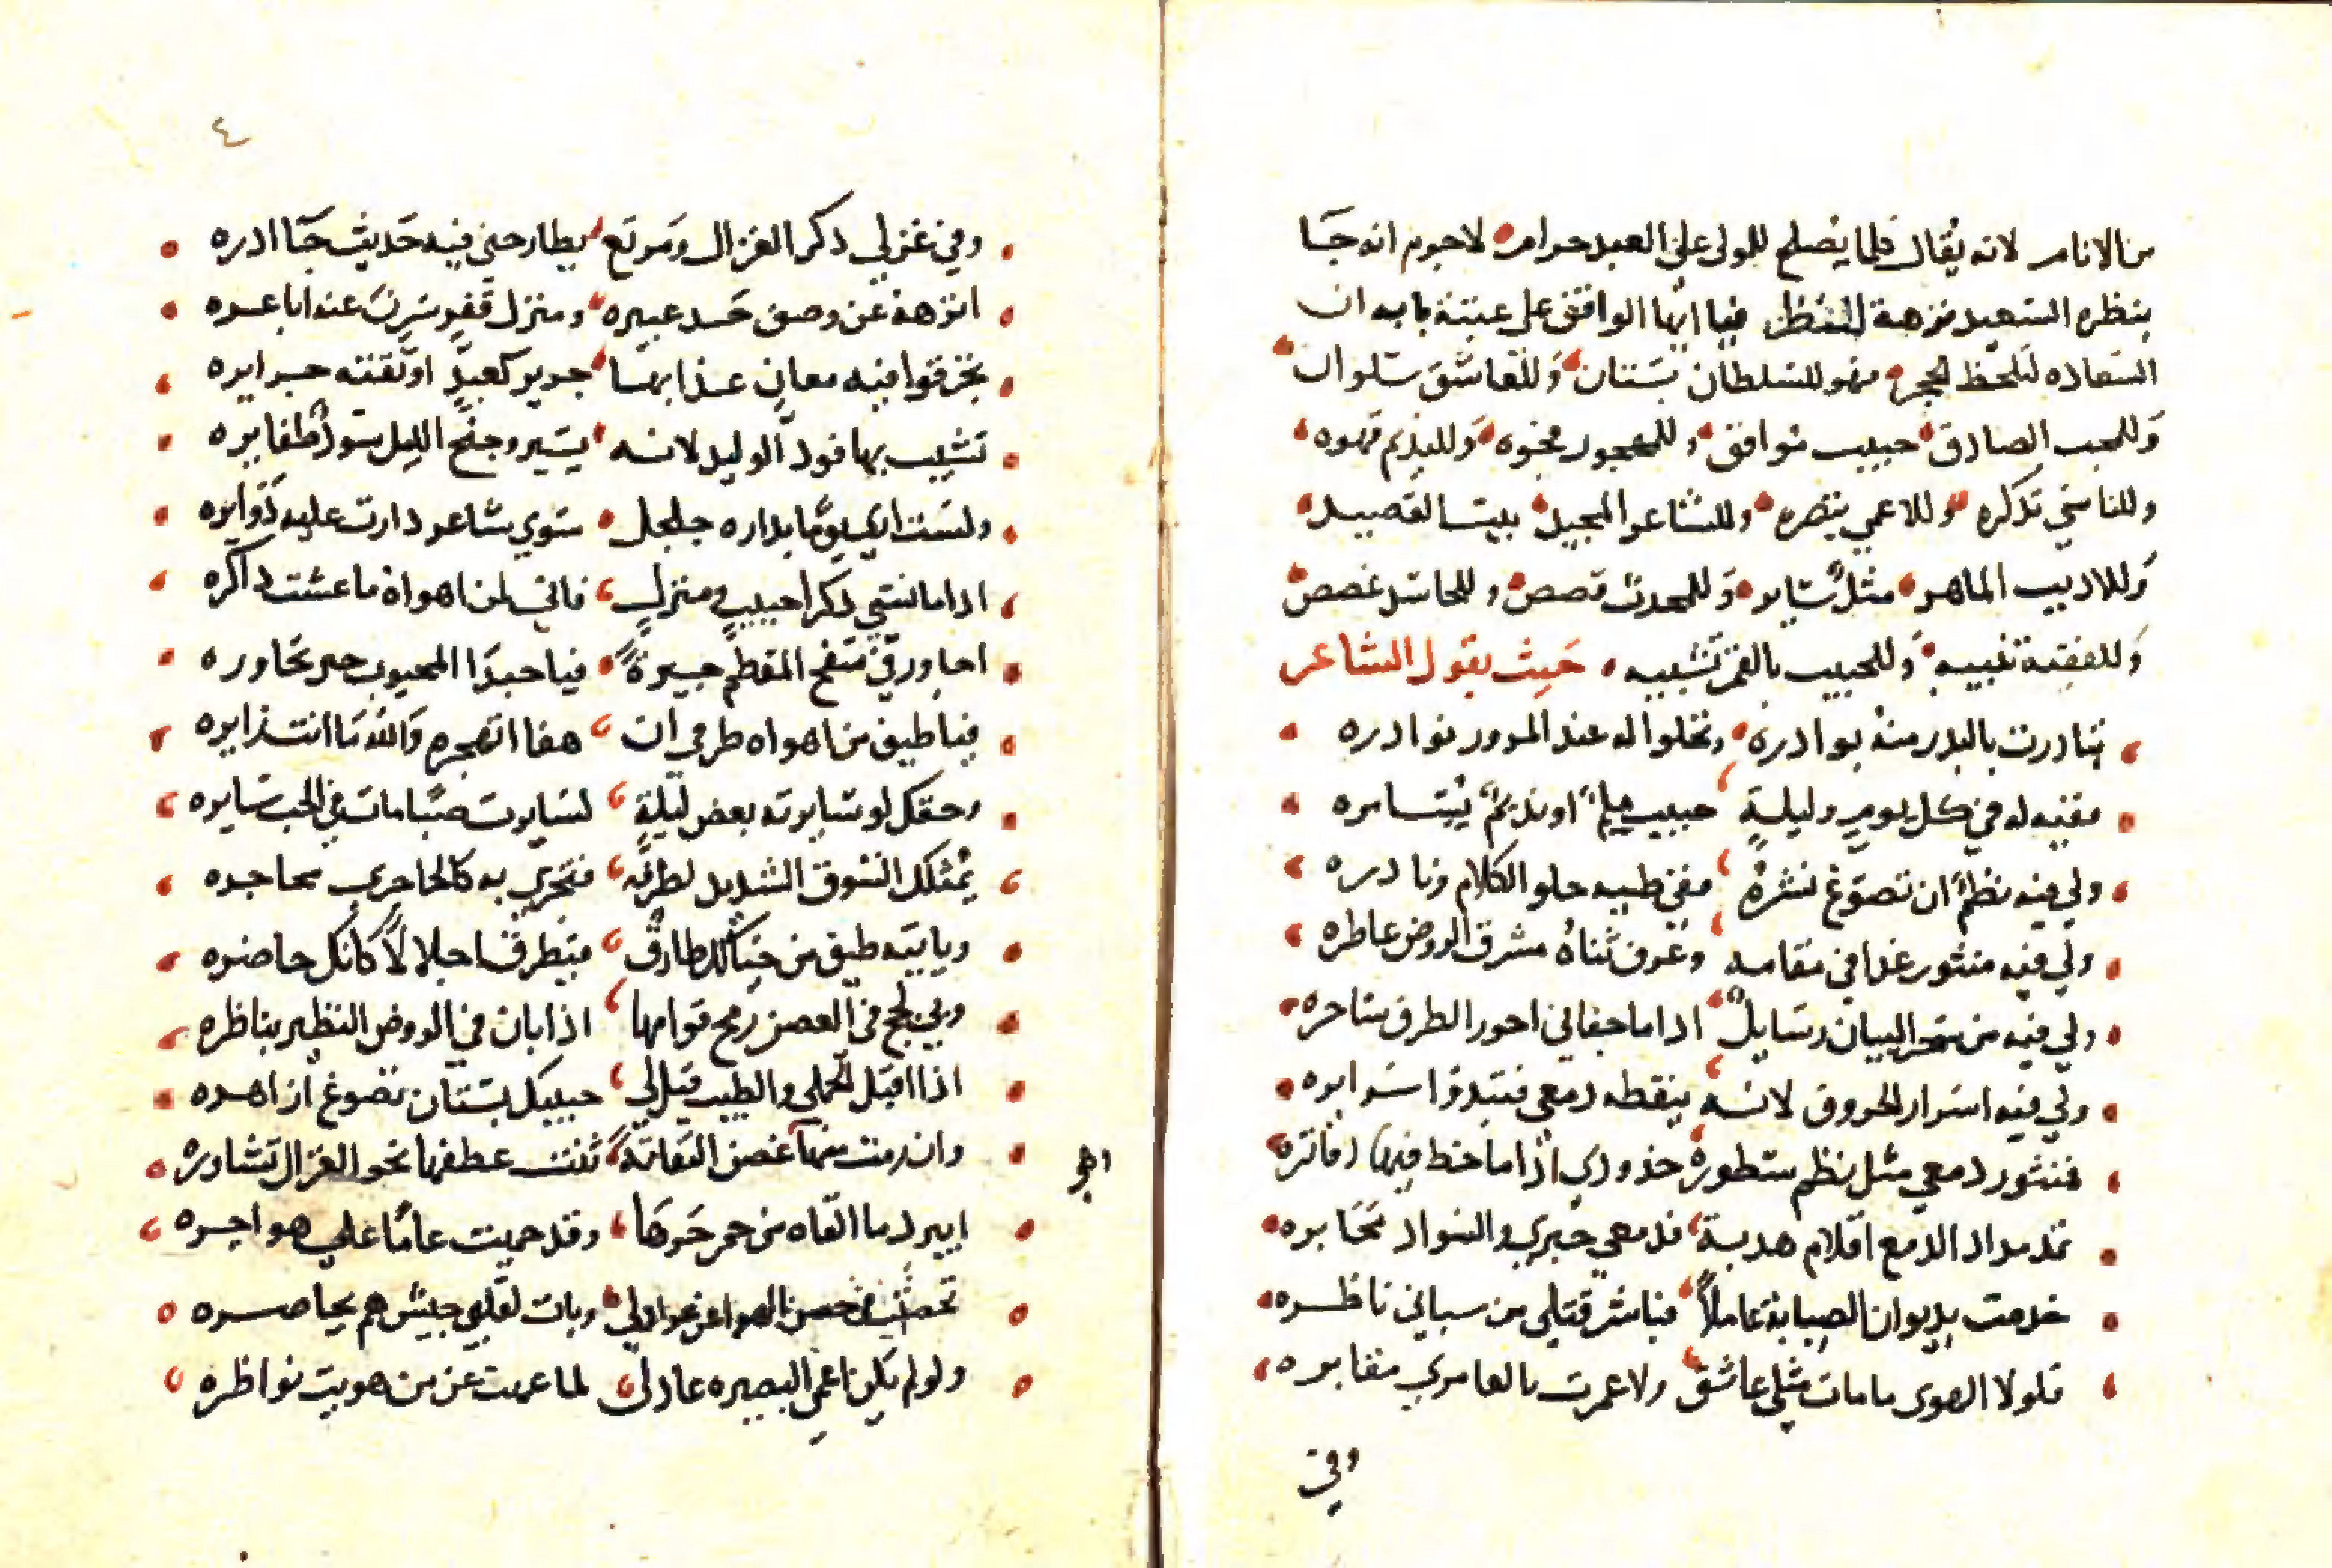 من الانام لانه يقال فلما يصلح للمولى على العبد حرام لا جرم انه جا
بنظره السعيد نزهة للنظر فيا ايها الواقف على عتبة بابه ان
السعاده لتلحظ الحجر فهو للسلطان بستان وللعاشق سلوان
وللمحب الصادق حبيب موافق وللمهجور نخوه وللنديم قهوه
وللناسي تذكره وللاعمي تبصره وللشاعر المجيد بيت القصيد
وللاديب الماهر مثل ساير وللمحدث قصص وللحاسد غصص
وللفقيه تنبيه وللحبيب بالقمر تشبيه حيث يقول الشاعر
تبادرت بالبدر منه بوادره وتحلوا له عند المرور نوادره
ففيه له في كل يوم وليلة حبيب ملم او نديم يسامره
ولي فيه نظم ان تضوع نشره ففي طيه حلو الكلام ونادره
ولي فيه منثور غدا في مقامه وعرف ثناه مشرق الروض عاطره
ولي فيه من سحر البيان رسايل اذا ما جفاني احور الطرف ساحره
ولي فيه اسرار الحروف لانه ينقطه دمعي فتبدوا سرايره
فمنثور دمعي مثل نظم سطوره خدودي اذا ما خط فيها دفاتره
تمد مداد الدمع اقلام هدبه فدمعي حبري والسواد محابره
خدمت بديوان الصبابة عاملا فباشر قتلي من سباني ناظره
فلولا الهوى ما مات مثلي عاشق ولا عمرت بالعامري مقابره
وفي
٤
وفي غزلي ذكر الغزال ومربع يطارحني فيه حديث جاادره
انزهه عن وصف خد عبيره ومنزل قفر سرت عنه اباعره
تشيب بها فود الوليد لانه يسير وجنح الليل سود ظفايره
ولست اري يوما بداره جلجل سوي شاعر دارت عليه دوايره
اذا ما نسي ذكرا حبيب ومنزل فاني لمن اهواه ما عشت ذاكره
اجاور في سفح المقطم جيرة فيا حبذا المحبوب حين تجاوره
فيا طيف من اهواه طرفي ان هفا اتهجره والله ما انت زايره
وحقك لو سايرته بعض ليلة لسايرت صبا مات في الحب سايره
يمثلك الشوق الشديد لطرفه فتجري به كالحاجري محاجره
وياتيه طيف من خيالك طارق فيطرق اجلالا كانك حاضره
وبي لج في الغصن رمح قوامها اذا بان في الروض النظير يناظره
اذا اقبل الحلي والطيب قيل لي حبيبك بستان تضوع ازاهره
وان رمت منها غصن القامة ثنت عطفها نحو الغزال تشاوره
ايبرد ما القاه من حر حرها وقد حميت عاما علي هواجره
تحصنت في حصن الهوا عن عواذلي وبات لقلبي جيش هم يحاصره
ولو لم يكن اعمي البصيره عاذلي لما عميت عن من هويت نواظره